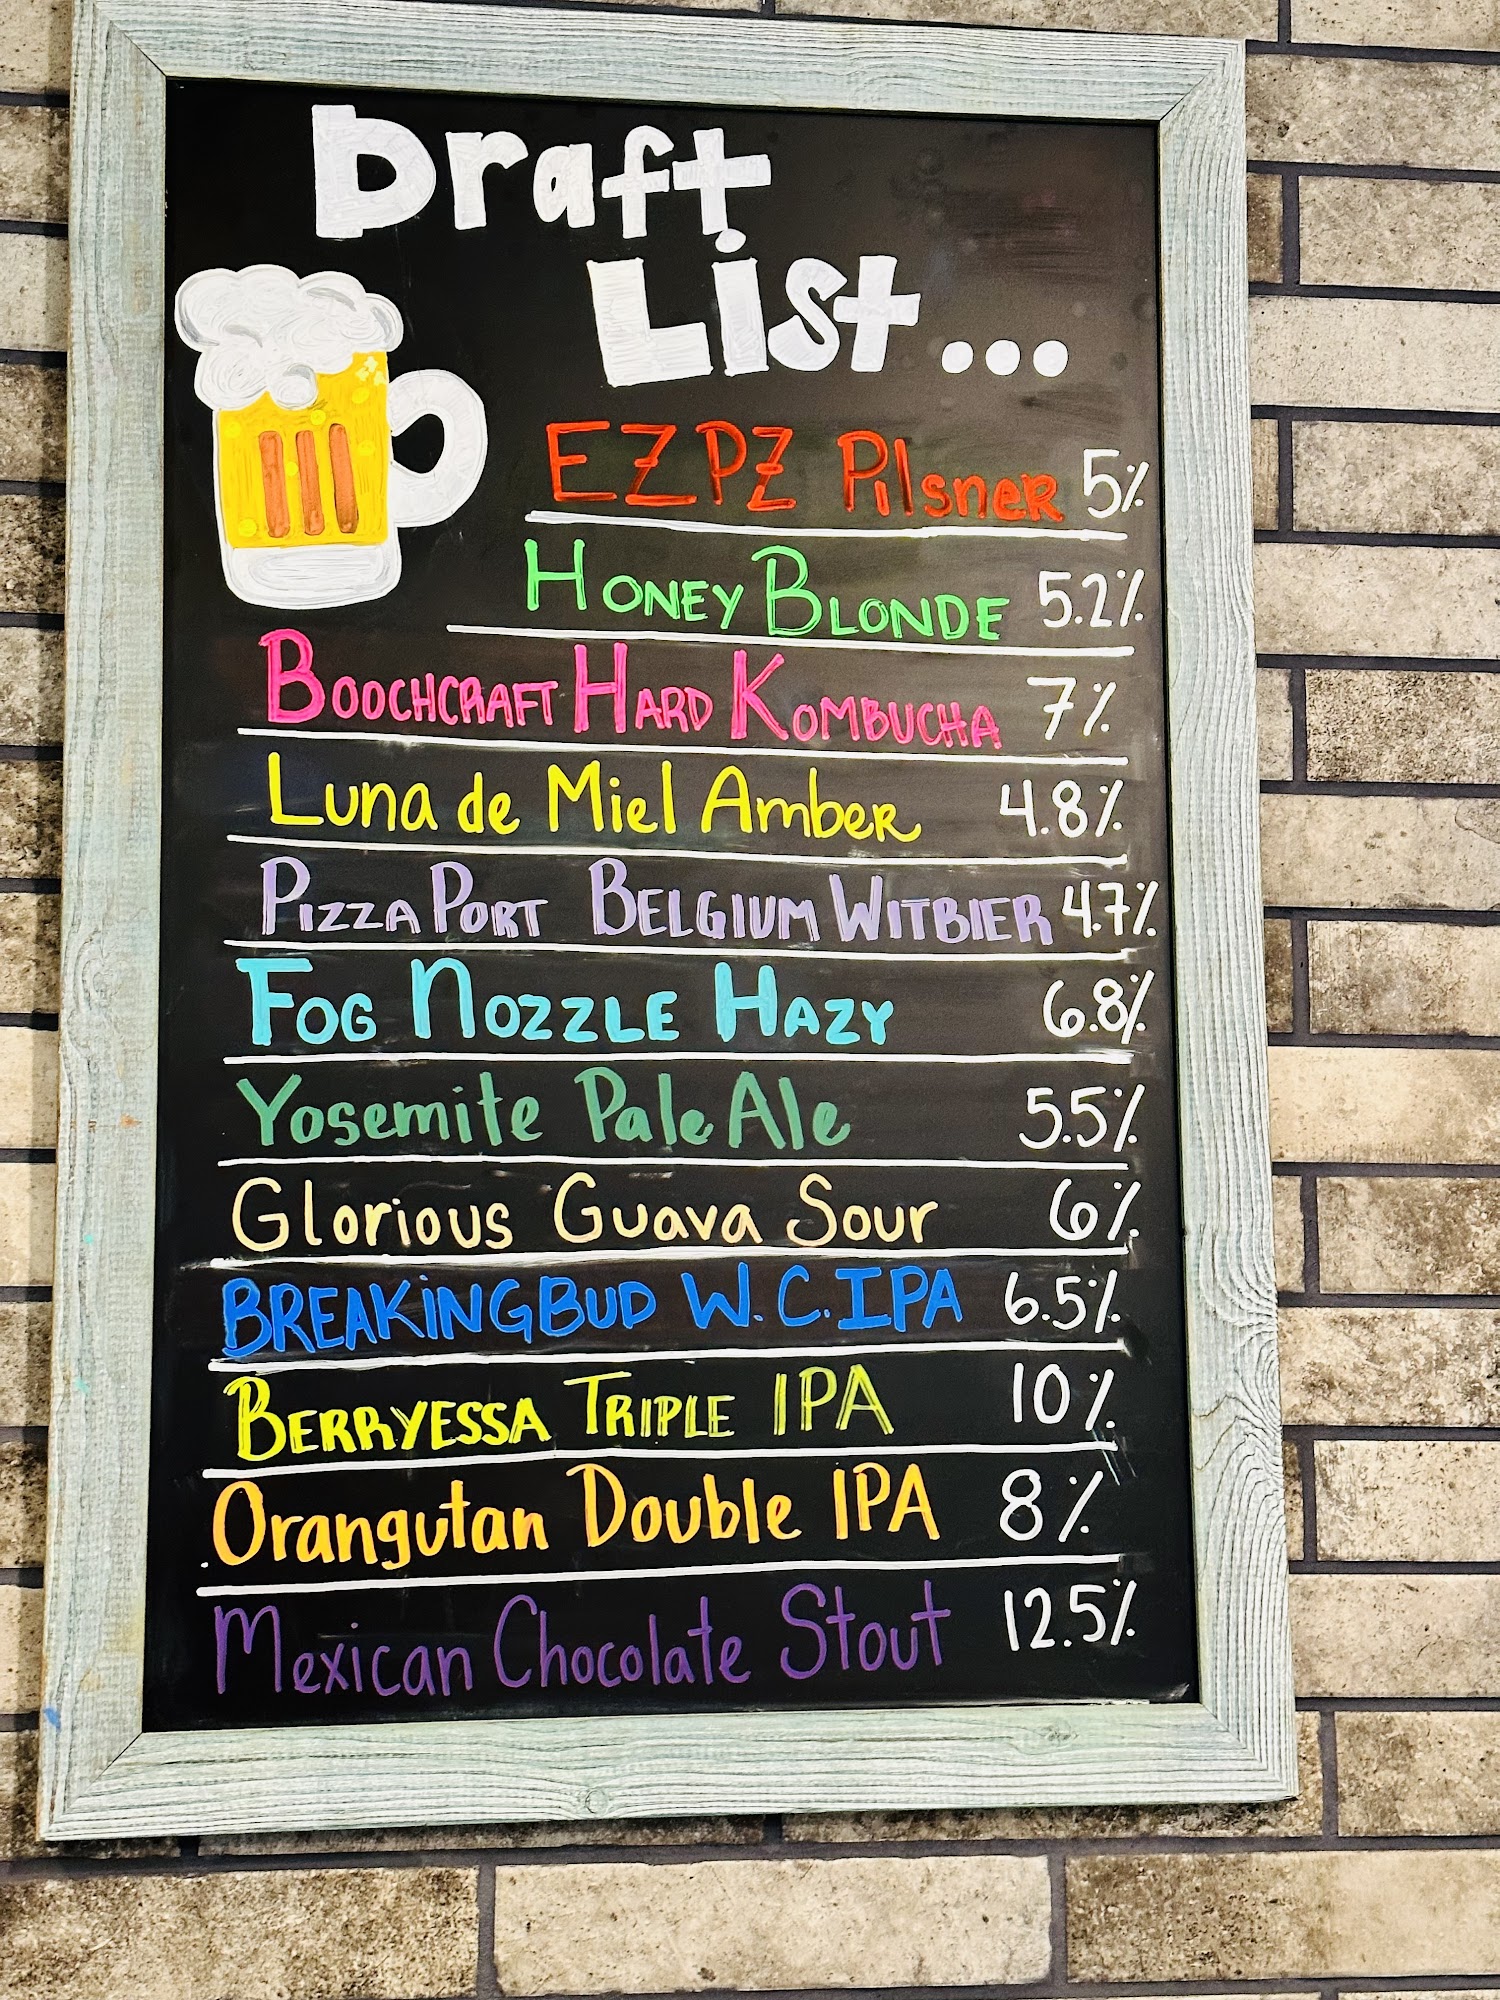 Draft
List...
EZPZ Pilsner 5%
Honey Blonde 5.2%
Boochcraft Hard Kombucha 7%
Luna de Miel Amber 4.8%
Pizza Port Belgium Witbier 4.7%
Fog Nozzle Hazy 6.8%
Yosemite Pale Ale 5.5%
Glorious Guava Sour 6%
BREAKiNG BUD W.C. IPA 6.5%
Berryessa Triple IPA 10%
Orangutan Double IPA 8%
Mexican Chocolate Stout 12.5%